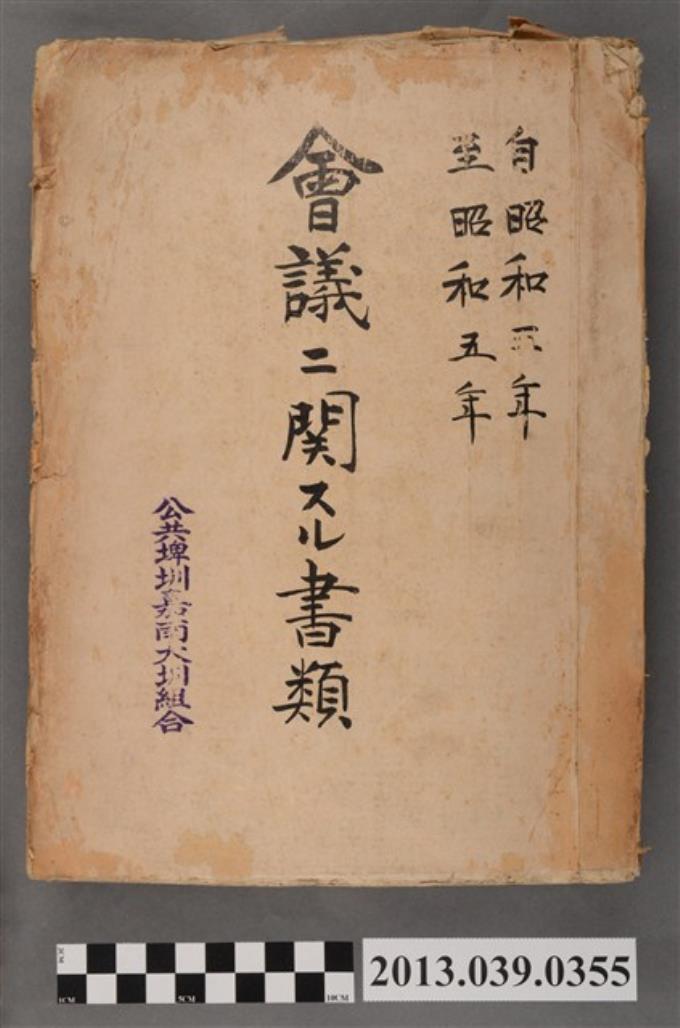 自昭和年
至昭和五年
會議ニ関スル書類
公共埤圳嘉南大圳組合
1CM 5CM 10CM
2013.039.0355